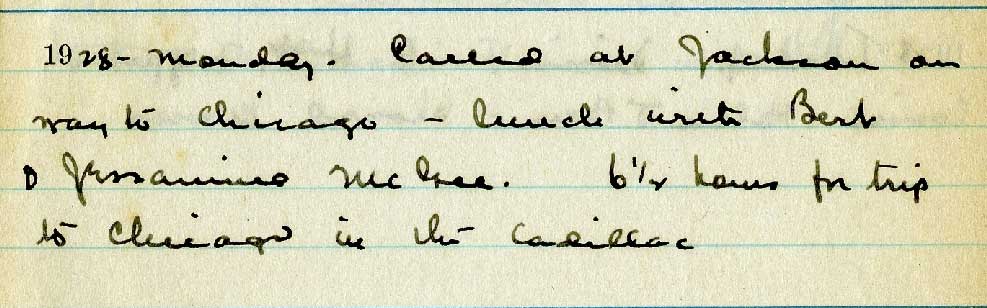 1928 - Monday. Called at Jackson on
way to Chicago - lunch with Bert
& Jessamine McGee. 6½ hours for trip
to Chicago in the Cadillac